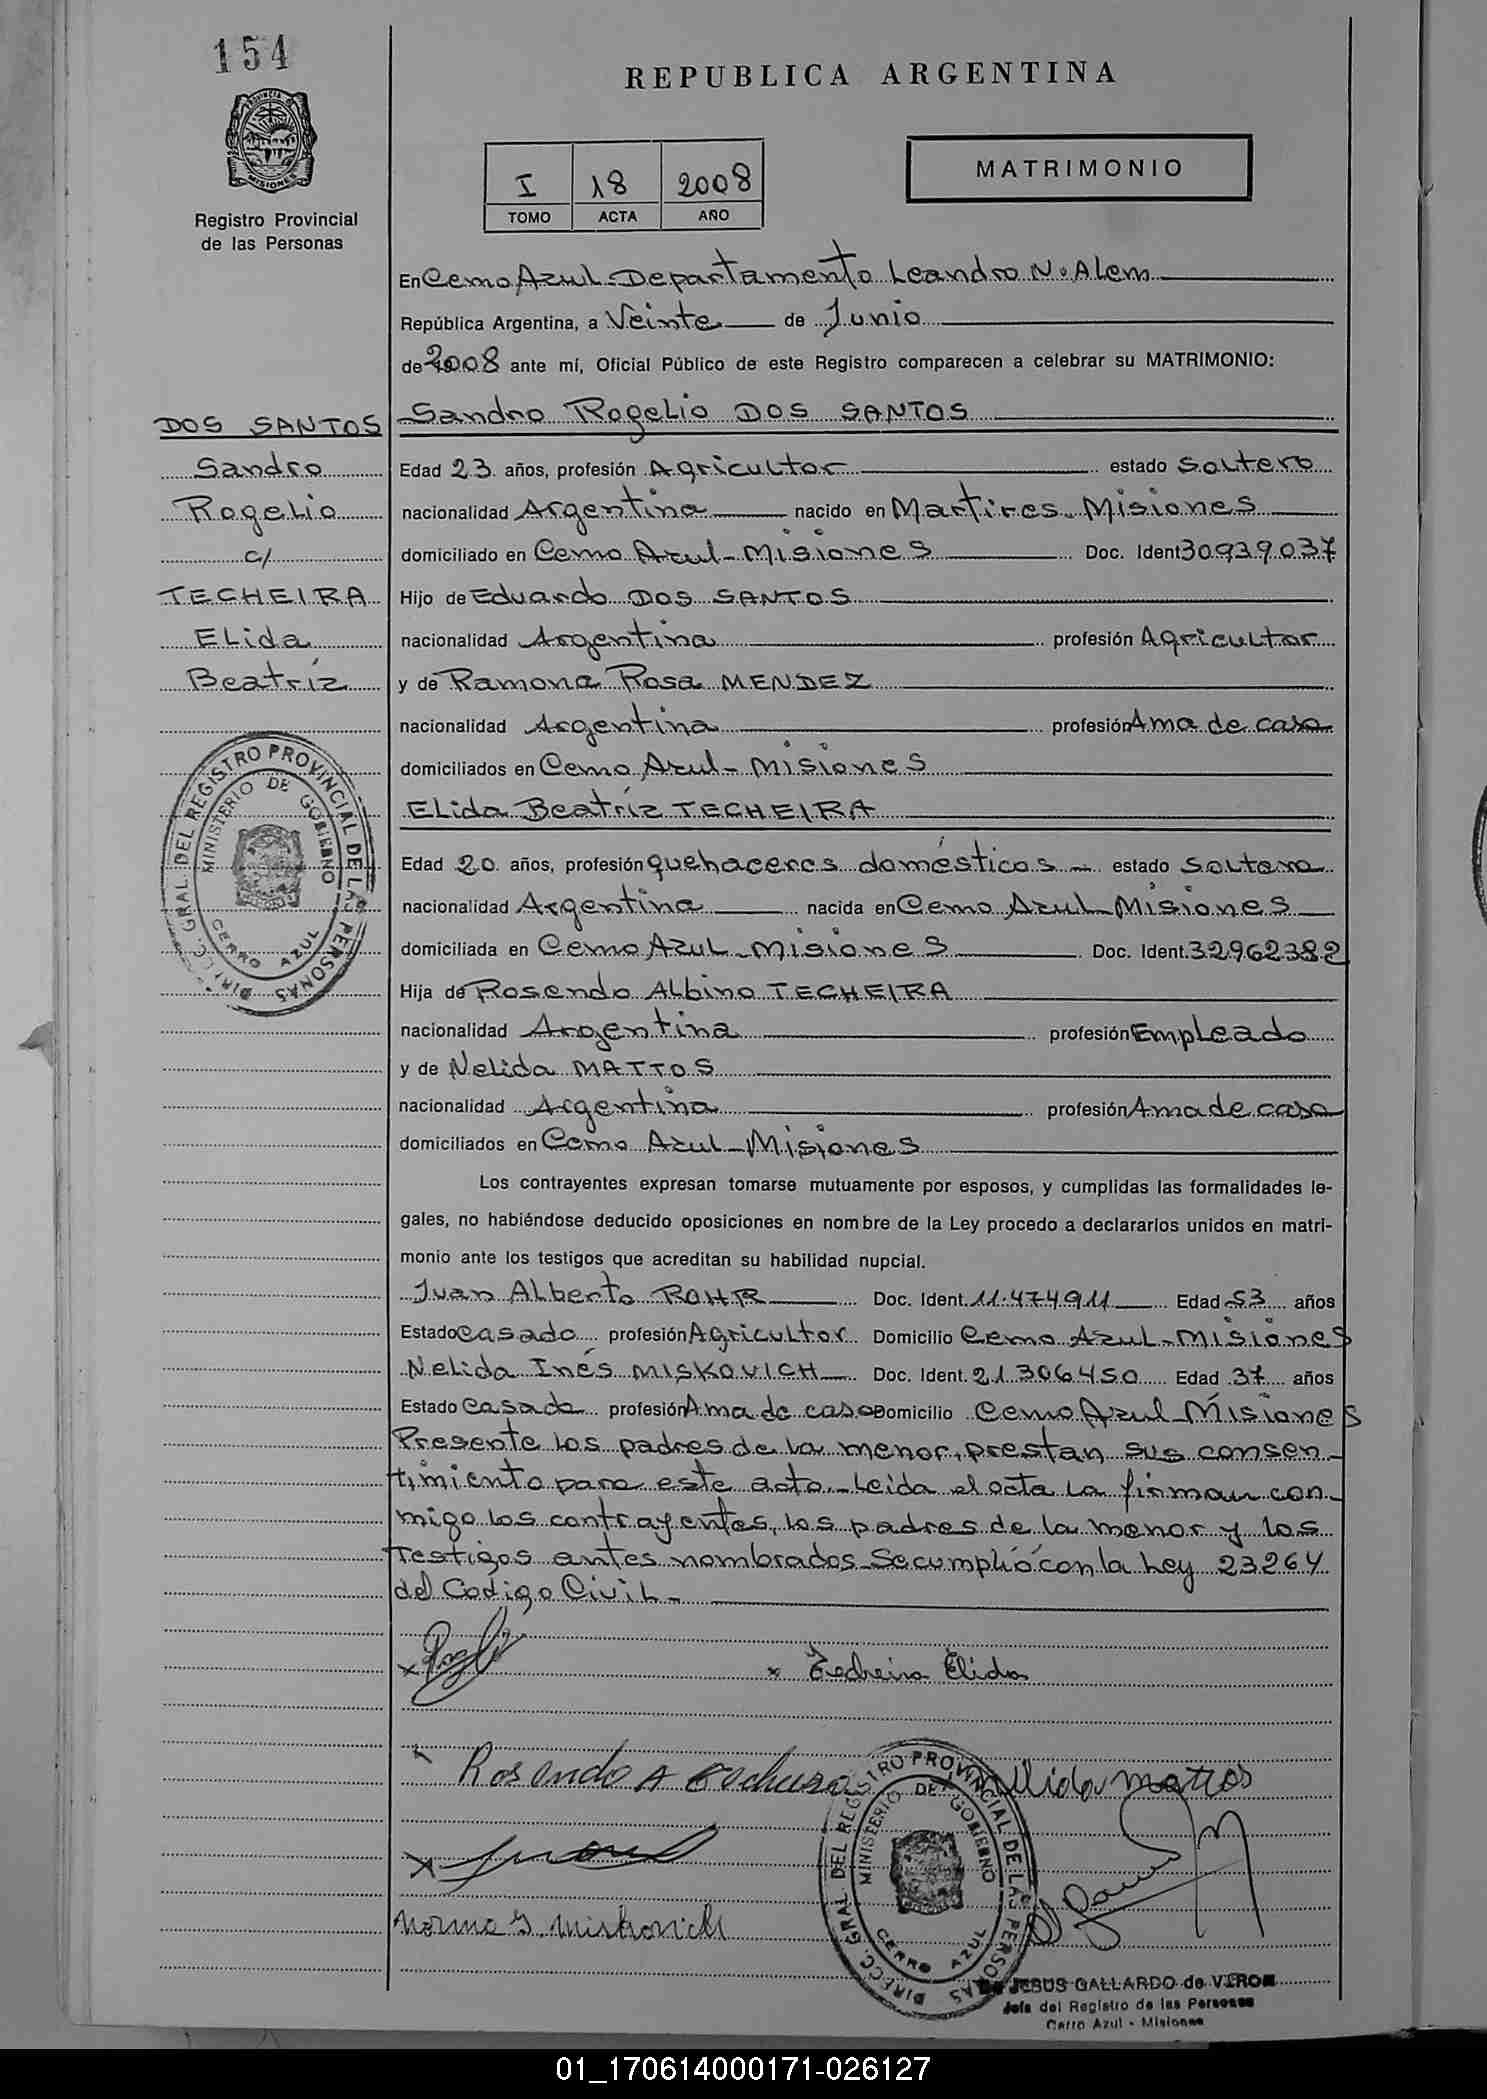 154
REPUBLICA ARGENTINA
PROVINCIA DE
MISIONES
Registro Provincial
de las Personas
I 18 2008
TOMO ACTA AÑO
MATRIMONIO
En Cerro Azul - Departamento Leandro N. Alem
República Argentina, a Veinte de Junio
de 2008 ante mí, Oficial Público de este Registro comparecen a celebrar su MATRIMONIO:
DOS SANTOS
Sandro
Rogelio
c/
TECHEIRA
Elida
Beatríz
Sandro Rogelio DOS SANTOS
Edad 23 años, profesión Agricultor estado Soltero
nacionalidad Argentina nacido en Martires - Misiones
domiciliado en Cerro Azul - Misiones Doc. Ident 30939037
Hijo de Eduardo DOS SANTOS
nacionalidad Argentina profesión Agricultor
y de Ramona Rosa MENDEZ
nacionalidad Argentina profesión Ama de casa
domiciliados en Cerro Azul - Misiones
Elida Beatríz TECHEIRA
Edad 20 años, profesión quehaceres domésticos - estado Soltera
nacionalidad Argentina nacida en Cerro Azul - Misiones
domiciliada en Cerro Azul - Misiones Doc. Ident. 32962382
Hija de Rosendo Albino TECHEIRA
nacionalidad Argentina profesión Empleado
y de Nelida MATTOS
nacionalidad Argentina profesión Ama de casa
domiciliados en Cerro Azul - Misiones
Los contrayentes expresan tomarse mutuamente por esposos, y cumplidas las formalidades le-
gales, no habiéndose deducido oposiciones en nombre de la Ley procedo a declararlos unidos en matri-
monio ante los testigos que acreditan su habilidad nupcial.
Juan Alberto ROHR Doc. Ident. 11.474911 Edad 53 años
Estado Casado profesión Agricultor Domicilio Cerro Azul - Misiones
Nelida Inés MISKOVICH Doc. Ident. 21306450 Edad 37 años
Estado Casada profesión Ama de casa Domicilio Cerro Azul - Misiones
Presente los padres de la menor, prestan sus consen-
timiento para este acto. - Leida el acta la firman con-
migo los contrayentes, los padres de la menor y los
testigos antes nombrados - Se cumplió con la Ley 23264
del Codigo Civil -
DIRECC. GRAL. DEL REGISTRO PROVINCIAL DE LAS PERSONAS
MINISTERIO DE GOBIERNO
CERRO AZUL
x x Techeira Elida
Rosendo A Nelida mattos
x
Norma I. Miskovich
DIRECC. GRAL. DEL REGISTRO PROVINCIAL DE LAS PERSONAS
MINISTERIO DE GOBIERNO
CERRO AZUL
JESUS GALLARDO de VIRON
Jefe del Registro de las Personas
Cerro Azul - Misiones
01_170614000171-026127